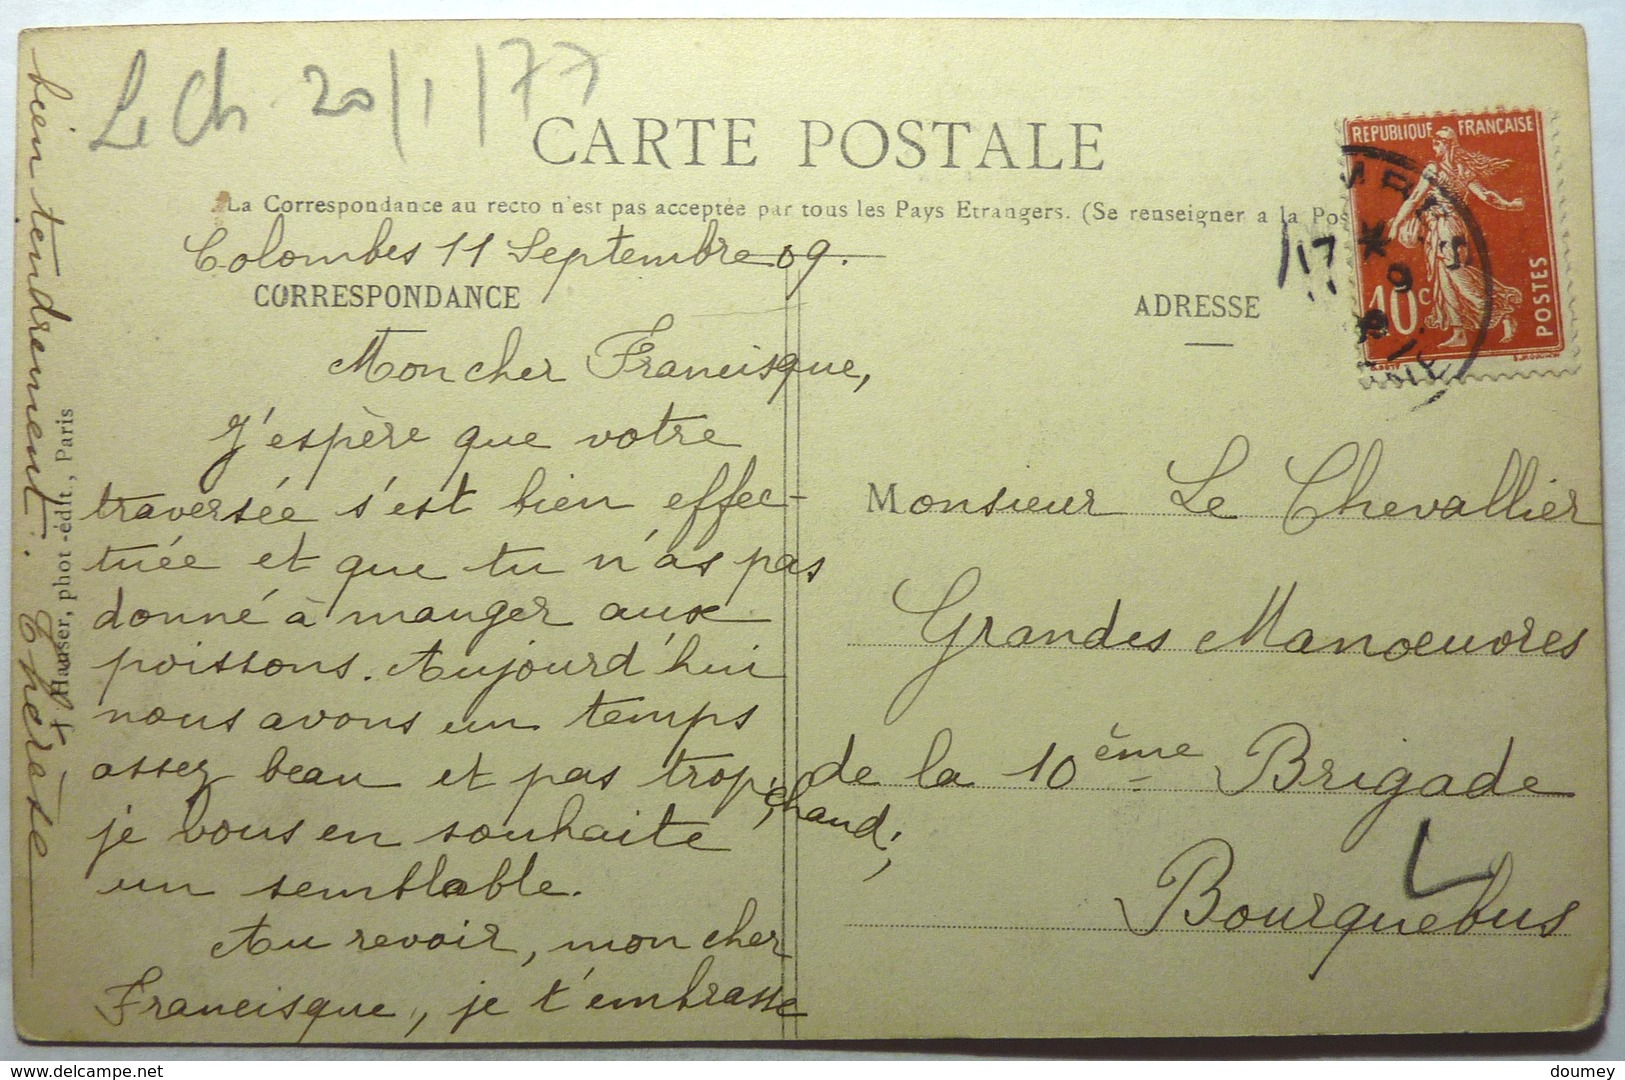 Le Ch 20/1/77
CARTE POSTALE
La Correspondance au recto n'est pas acceptée par tous les Pays Etrangers. (Se renseigner a la Pos
Colombes 11 Septembre 09.
CORRESPONDANCE
Mon cher Francisque,
J'espère que votre
traversée s'est bien effec-
tuée et que tu n'as pas
donné à manger aux
poissons. Aujourd'hui
nous avons un temps
assez beau et pas trop
chaud;
je vous en souhaite
un semblable.
Au revoir, mon cher
Francisque, je t'embrasse
bien tendrement. Thérèse
Hauser, phot.-édit., Paris
ADRESSE
REPUBLIQUE FRANÇAISE
10c
POSTES
17
9
Monsieur Le Chevallier
Grandes Manoeuvres
de la 10ème Brigade
Bourguebus
delcampe.net
doumey